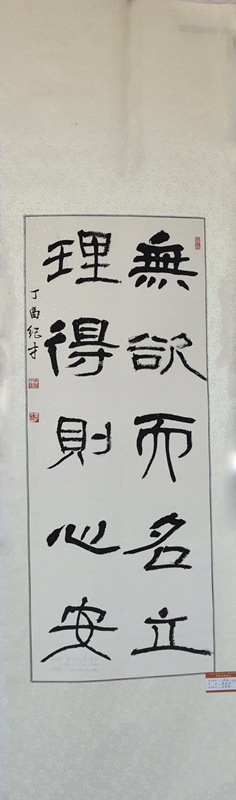 無欲而名立
理得則心安
丁酉纪才